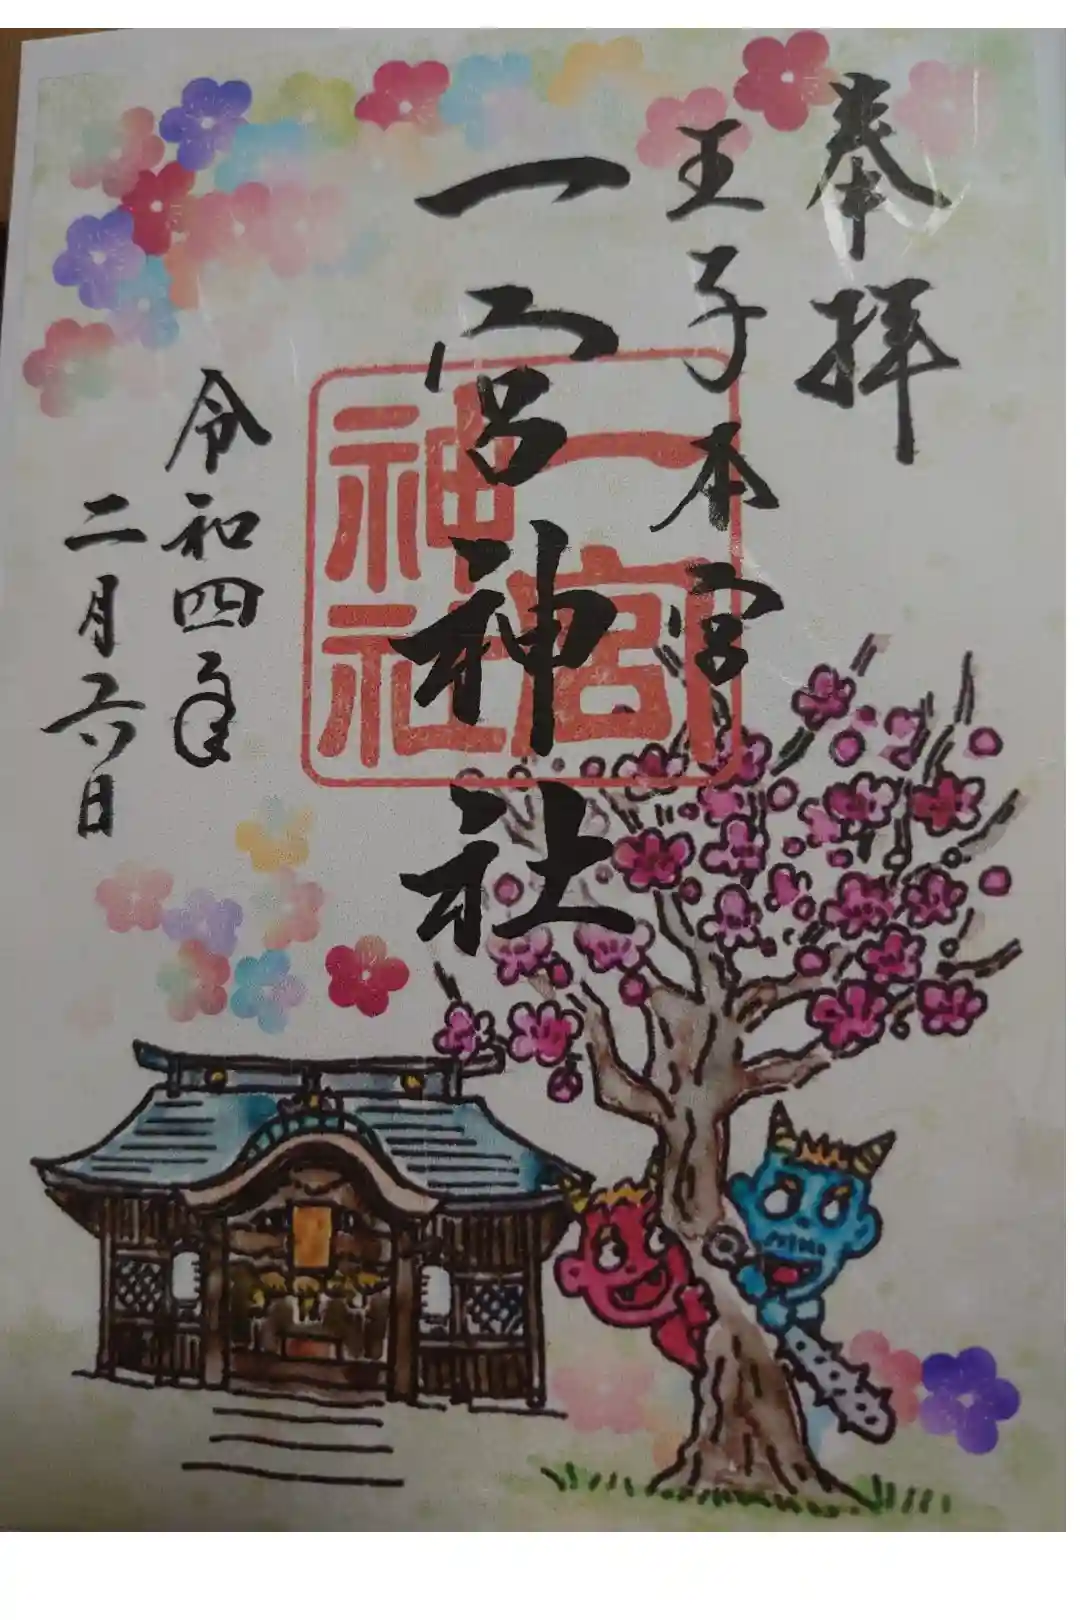 奉拝
王子本宮
一宮神社
一宮
神社
令和四年
二月六日